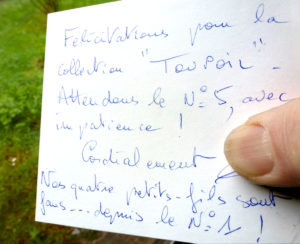 Félicitations pour la
collection "TOUPOIL" -
Attendons le N° 5, avec
impatience !
Cordialement
Nos quatre petits-fils sont
fans... depuis le N° 1 !